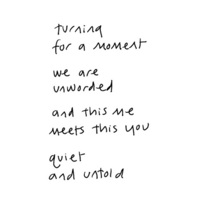 turning
for a moment
we are
unworded
and this me
meets this you
quiet
and untold